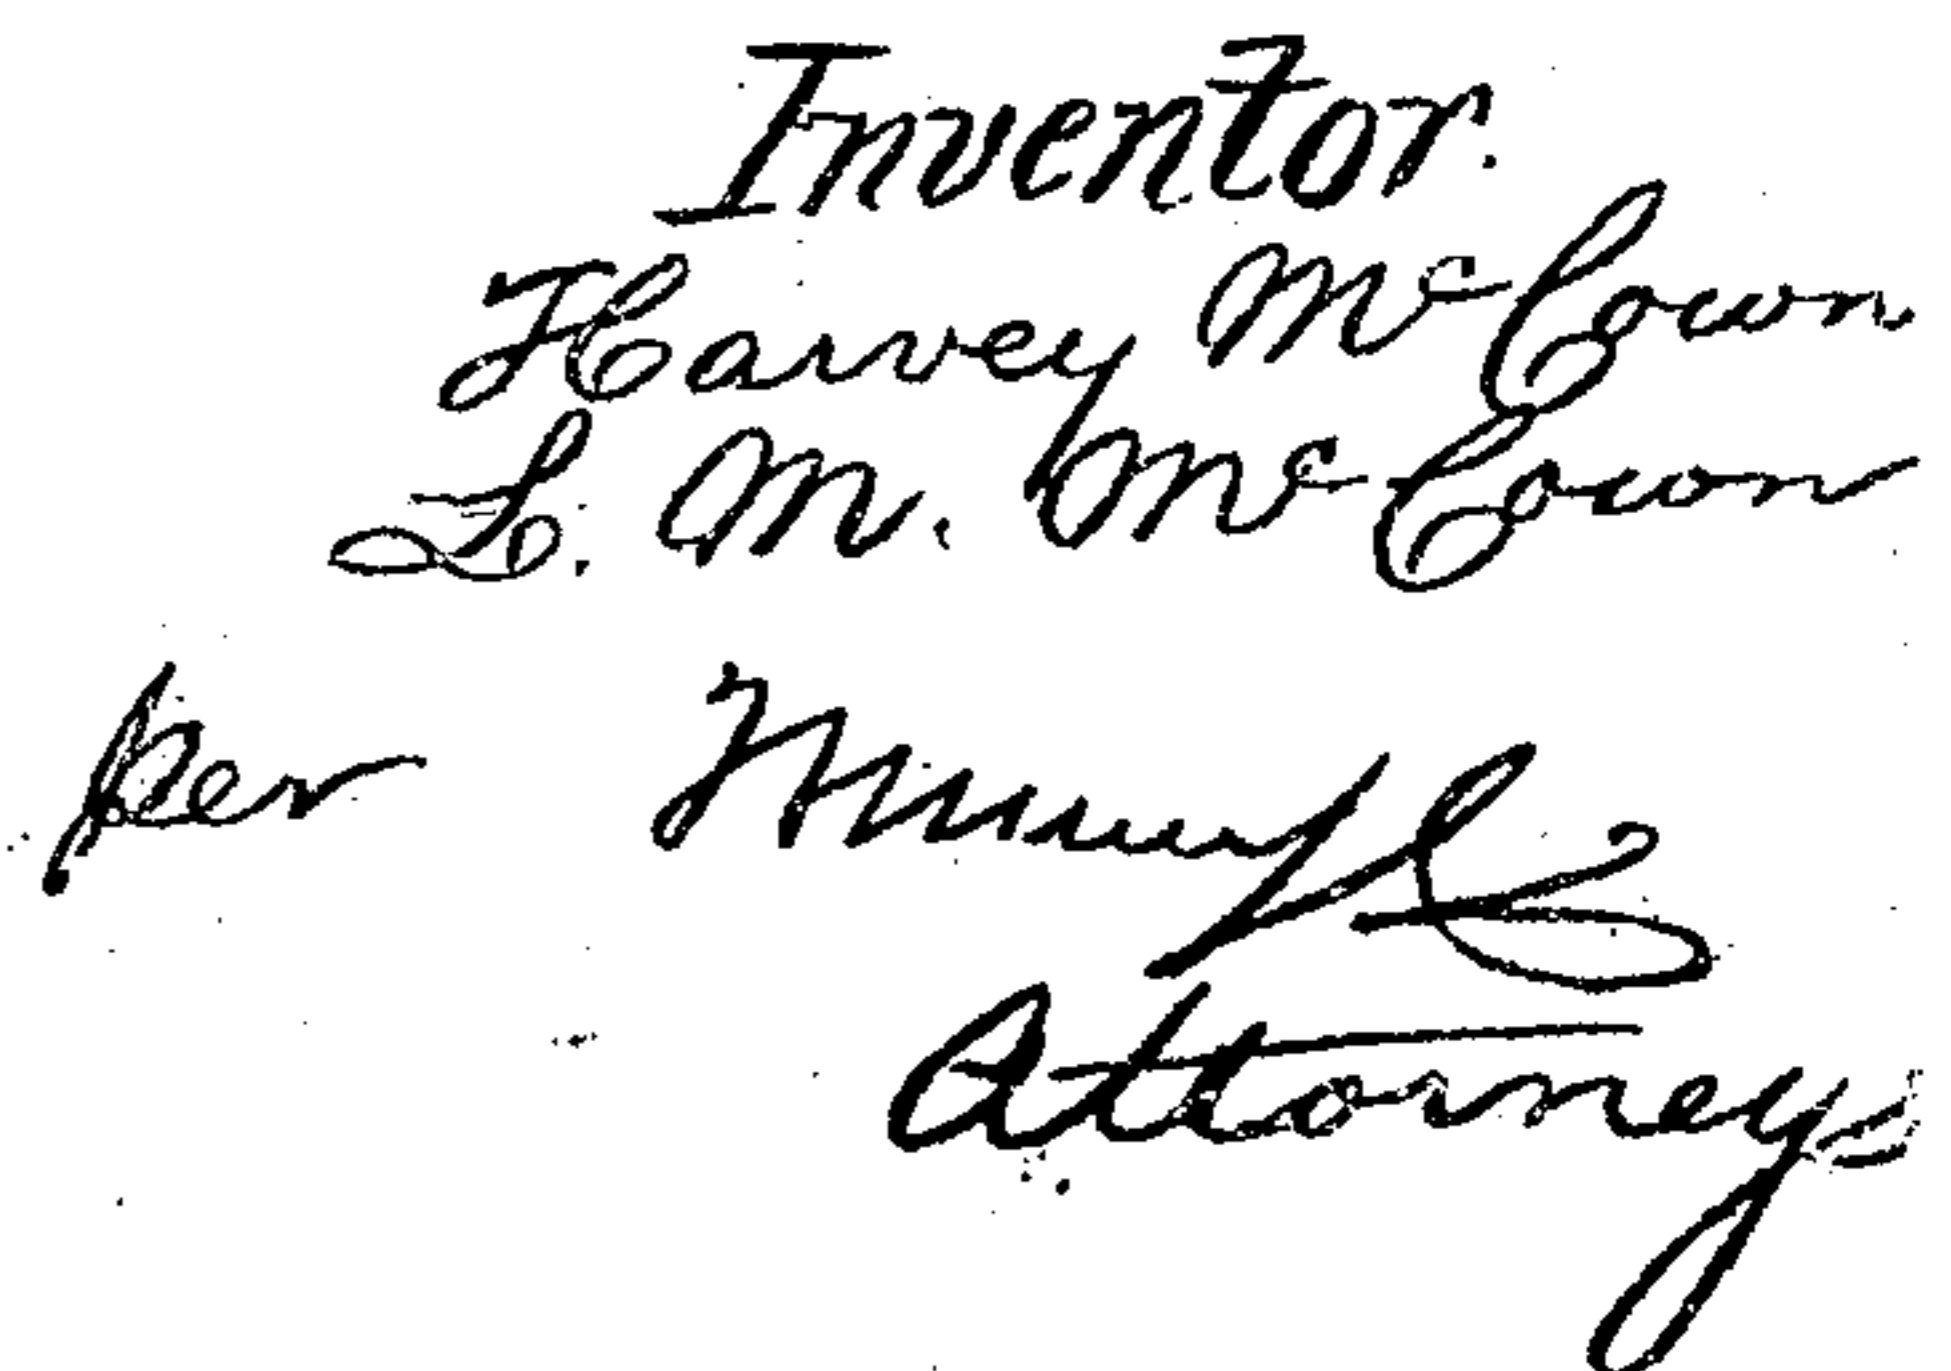 Inventor.
Harvey McCown.
L. M. McCown
per Munn & Co
Attorneys